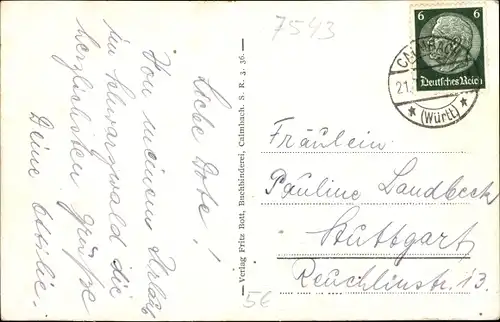 Liebe Dote!
Von meinem Urlaub
im Schwarzwald die
herzlichsten Grüße
Deine Ottilie.
Verlag Fritz Bott, Buchbinderei, Calmbach. S. R. 3. 36.
7543
6 6
Deutsches Reich
CALMBACH
21.
(Württ)
Fräulein
Pauline Landbeck
Stuttgart
Reuchlinstr. 13.
5€